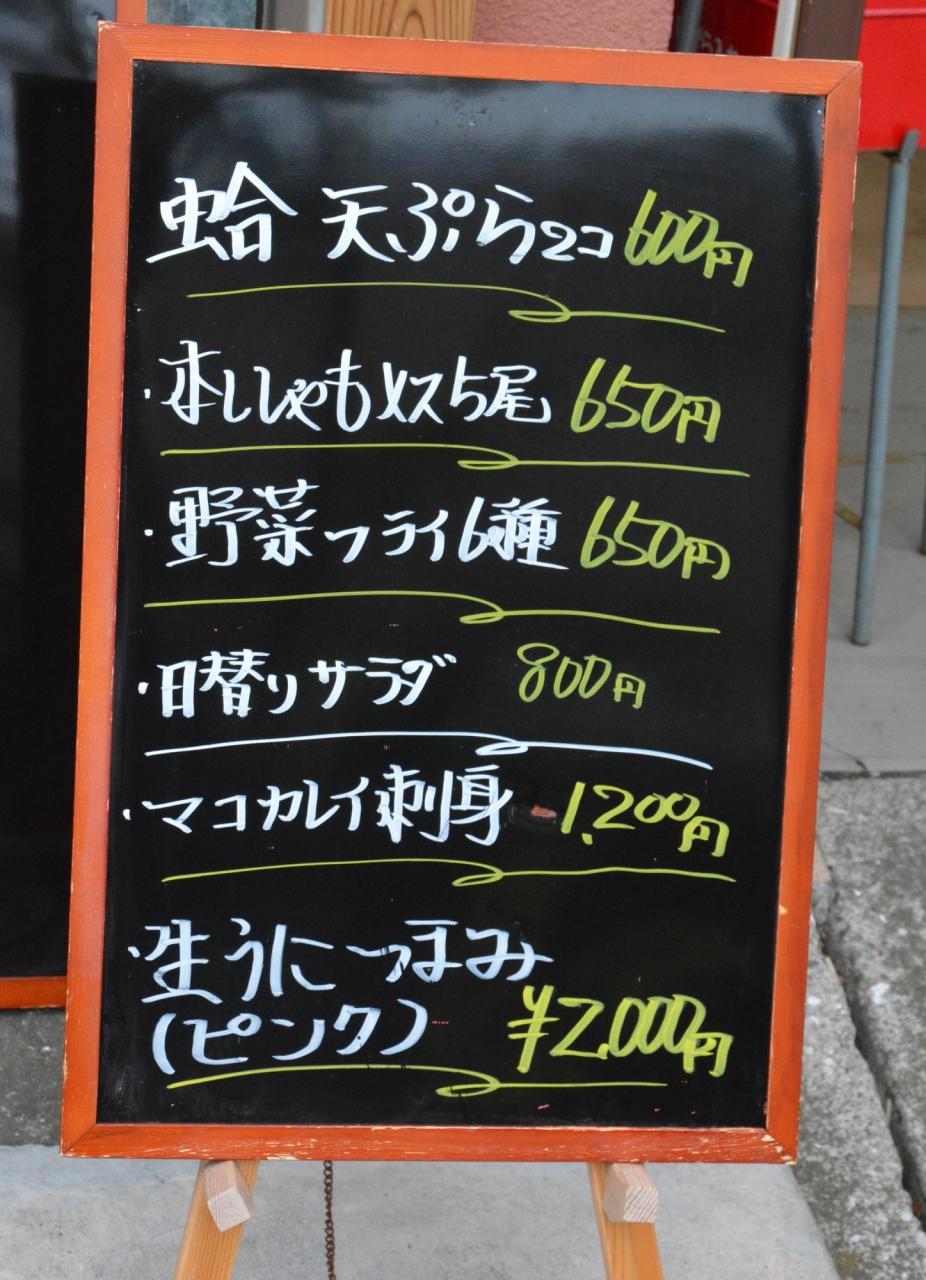 蛤 天ぷら2コ 600円
・本ししゃもメス5尾 650円
・野菜フライ6種 650円
・日替りサラダ 800円
・マコカレイ刺身 1,200円
・生うに一つぼみ
(ピンク) ¥2,000円